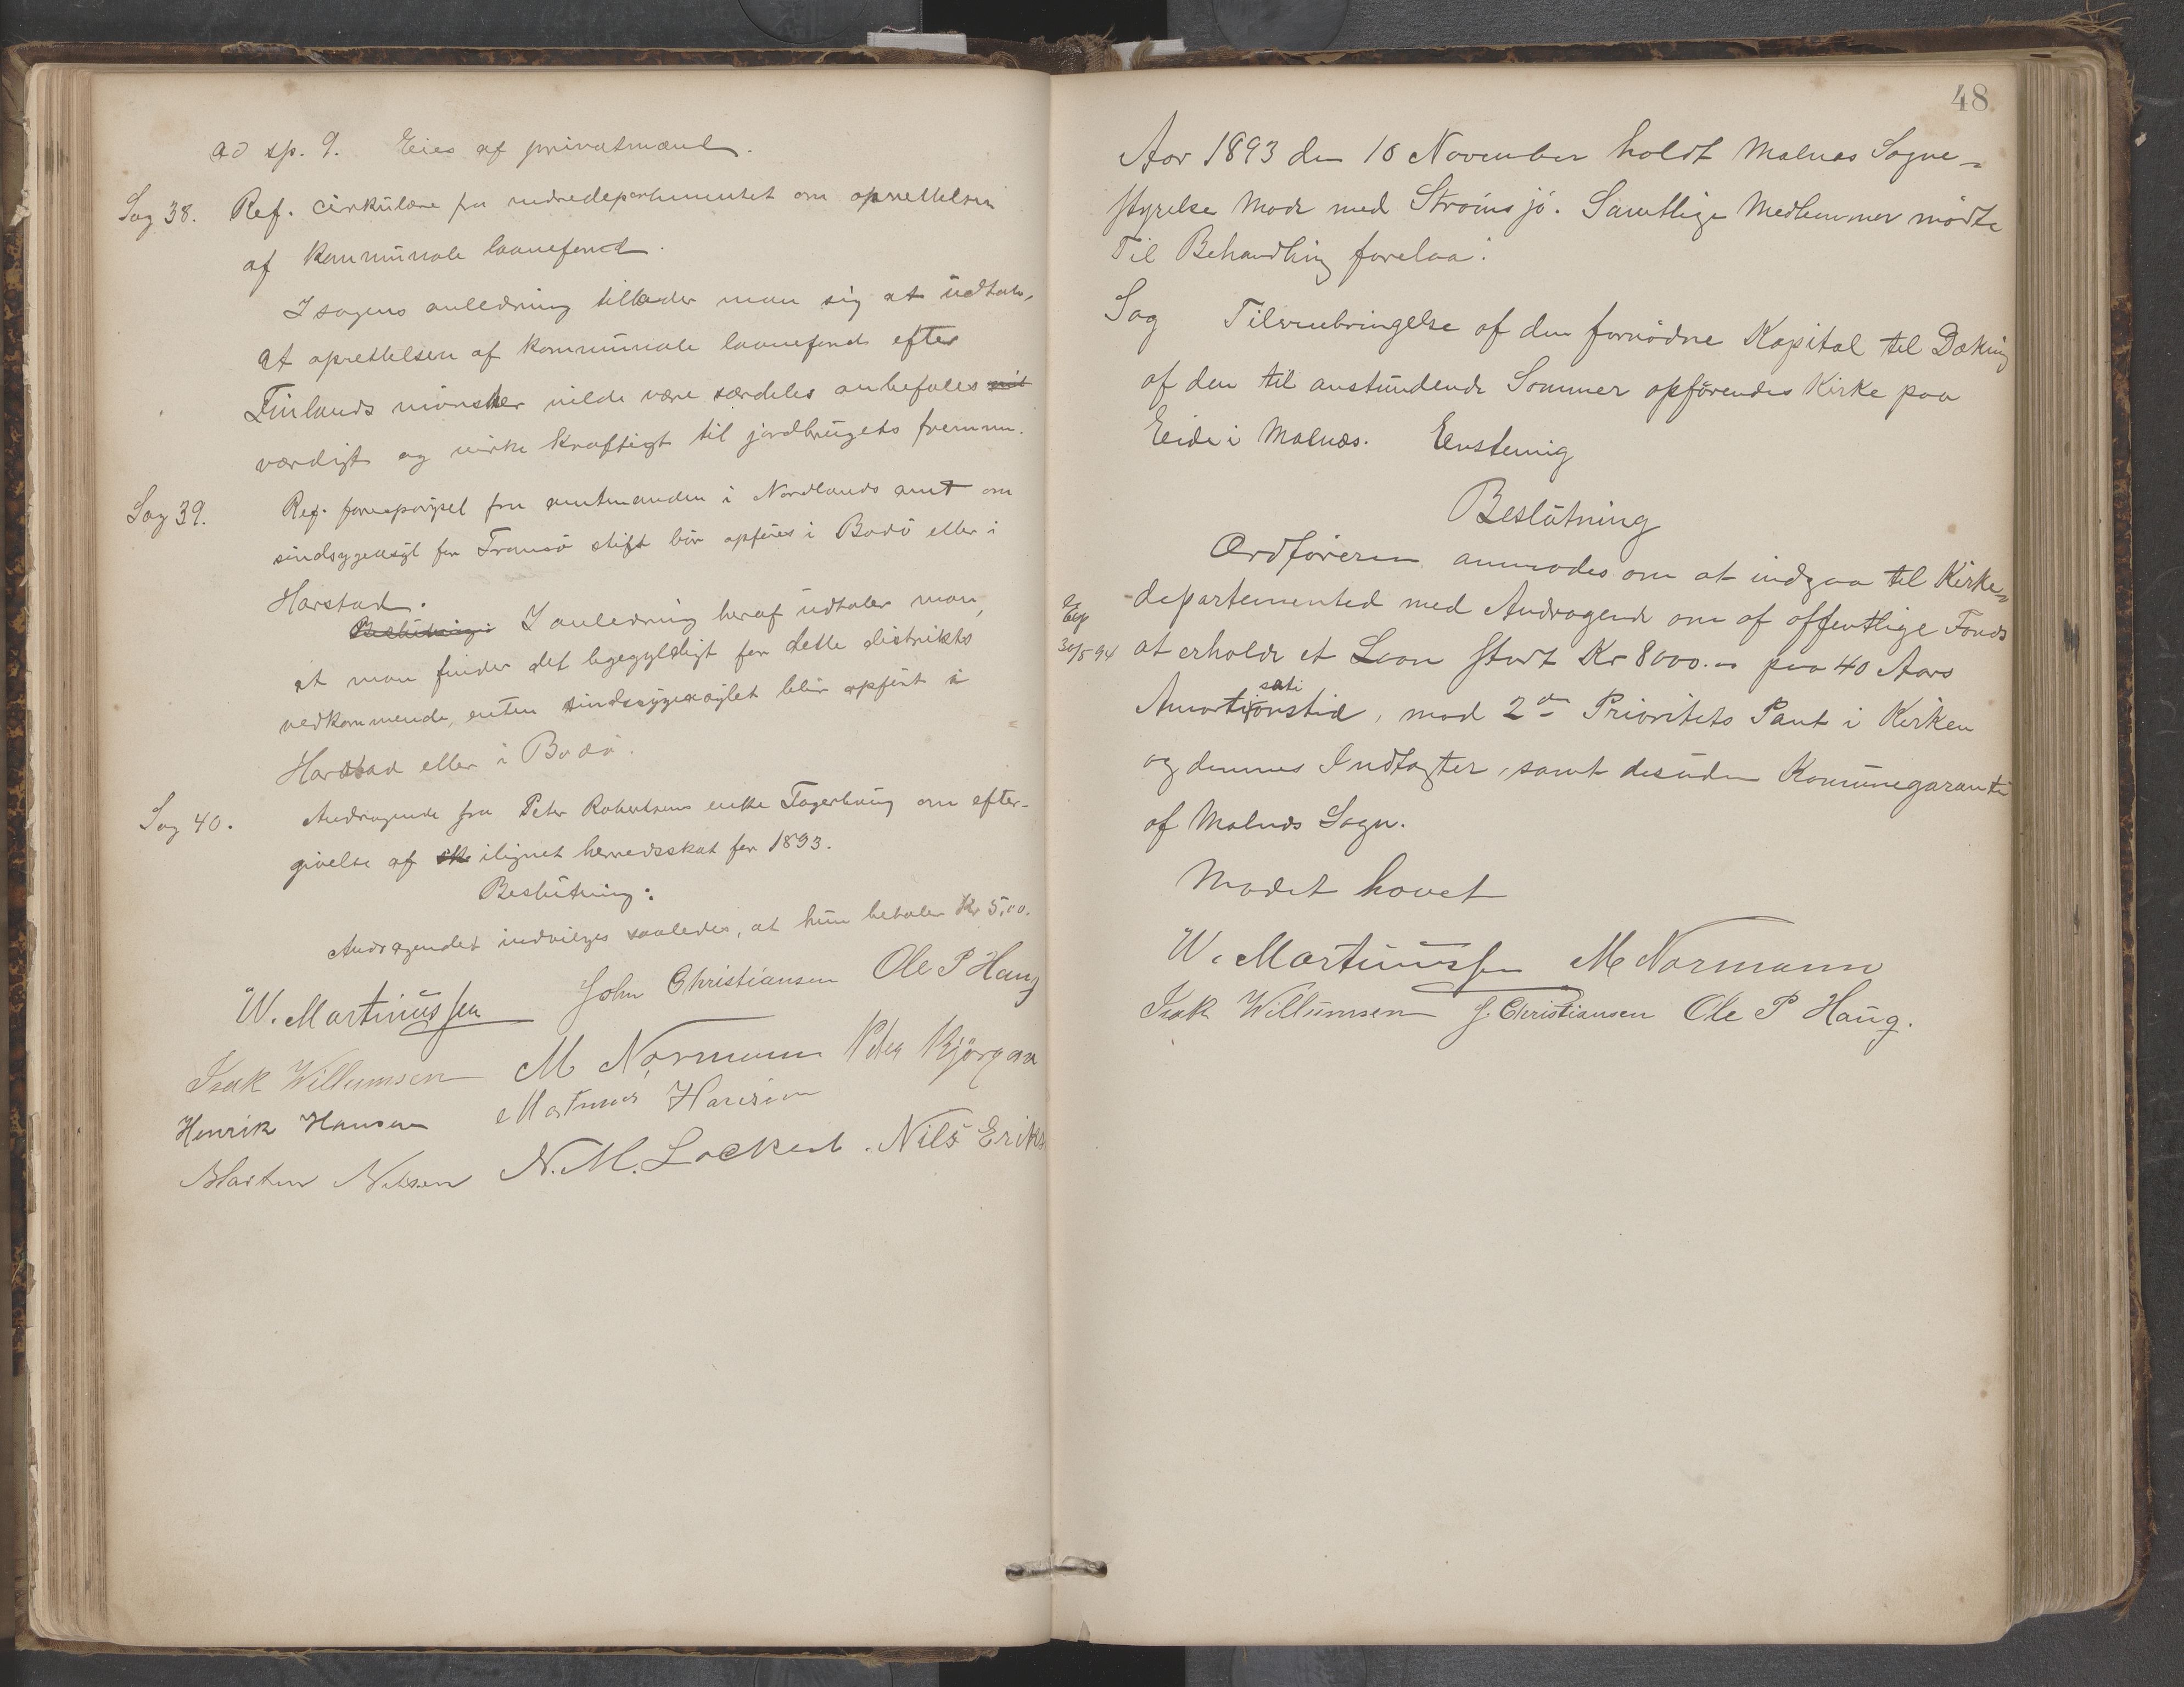 ad sp. 9. Eies af privatmænd.
Sag 38. Ref. cirkulære fra indredepartementet om oprettelsen
af kommunale laanefond.
I sagens anledning tillader man sig at udtale,
at oprettelsen af kommunale laanefond efter
Finlands mønster vilde være særdeles anbefales
værdigt og virke kraftigt til jordbrugets fremme.
Sag 39. Ref. forespørsel fra amtmanden i Nordlands amt om
sindsygeasyl for Tromsø stift bør opføres i Bodø eller i
Harstad.
Beslutning: I anledning heraf udtaler man,
at man finder det ligegyldigt for dette distrikts
vedkommende, enten sindssygeasylet blir opført i
Harstad eller i Bodø.
Sag 40. Andragende fra Peter Robertsens enke Tagerhaug om efter-
givelse af sk ilignet herredsskat for 1893.
Beslutning:
Andragendet indvilges saaledes, at hun betaler Kr 5,00.
W. Martinussen John Christiansen Ole P Haug
Isak Willumsen M Normann Peter Bjørgan
Henrik Hansen Martinus
Martin Nilsen N. M. Lockert. Nils Eriks
48
Aar 1893 den 10 November holdt Malnæs Sogne-
styrelse Møde med Strømsjø. Samtlige Medlemmer mødte
Til Behandling forelaa:
Sag Tilveiebringelse af den fornødne Kapital til Dækning
af den til anstundende Sommer opførendes Kirke paa
Eide i Malnæs. Enstemig
Beslutning
Ordføreren anmodes om at indgaa til Kirke-
departemented med Andragende om af offentlige Fonds
Exp
30/5 94
at erholde et Laan stort Kr 8000.00 paa 40 Aars
Amortisationstid, mod 2den Prioritets Pant i Kirken
og dennes Indtægter, samt desuden Komunegaranti
af Malnæs Sogn.
Mødet hævet
W. Martinussen M Normann
Isak Willumsen J. Christiansen Ole P Haug.